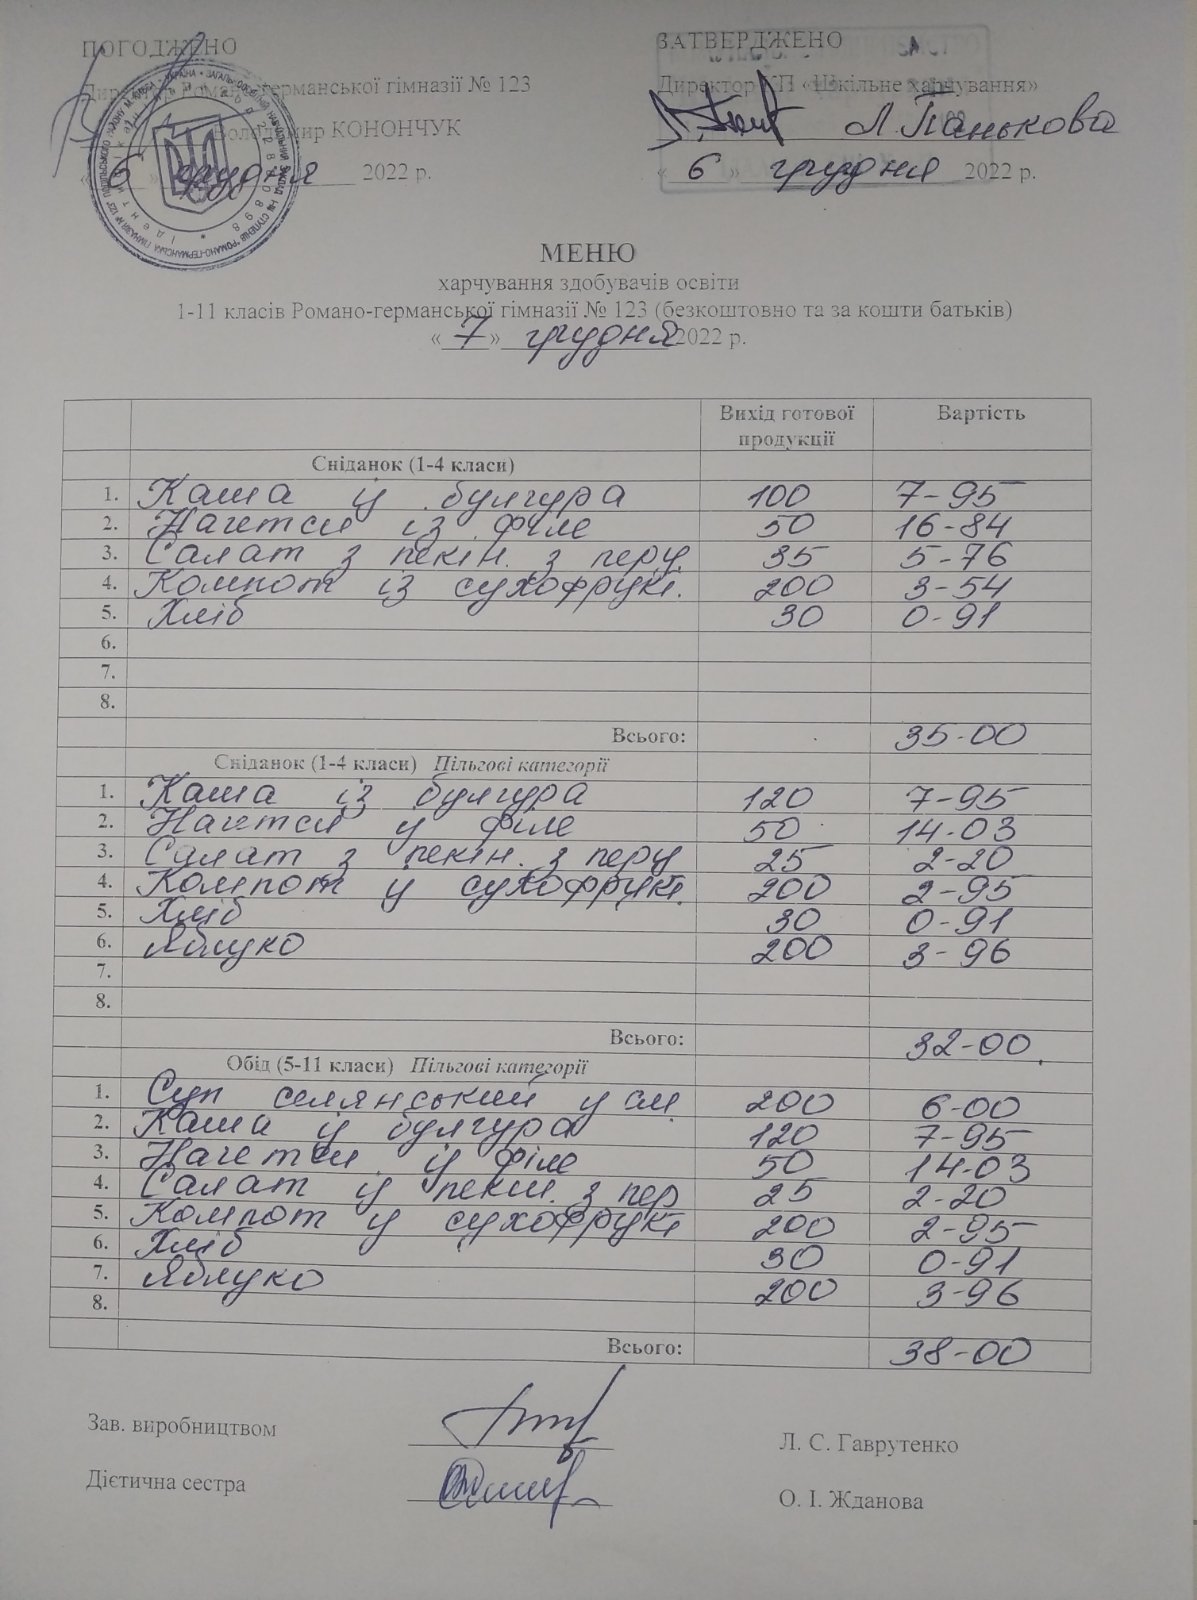 ПОГОДЖЕНО
Директор Романо-германської гімназії № 123
Володимир КОНОНЧУК
« 6 » грудня 2022 р.
ЗАТВЕРДЖЕНО
Директор КП «Шкільне харчування»
Л. Панькова
« 6 » грудня 2022 р.
МЕНЮ
харчування здобувачів освіти
1-11 класів Романо-германської гімназії № 123 (безкоштовно та за кошти батьків)
« 7 » грудня 2022 р.
Вихід готової продукції Вартість
Сніданок (1-4 класи)
1. Каша із булгура 100 7-95
2. Нагетси із філе 50 16-84
3. Салат з пекін. з перу 35 5-76
4. Компот із сухофрукт. 200 3-54
5. Хліб 30 0-91
6.
7.
8.
Всього: 35-00
Сніданок (1-4 класи) Пільгові категорії
1. Каша із булгура 120 7-95
2. Нагетси із філе 50 14-03
3. Салат з пекін. з перу 25 2-20
4. Компот із сухофрукт. 200 2-95
5. Хліб 30 0-91
6. Яблуко 200 3-96
7.
8.
Всього: 32-00
Обід (5-11 класи) Пільгові категорії
1. Суп селянський із см. 200 6-00
2. Каша із булгура 120 7-95
3. Нагетси із філе 50 14-03
4. Салат із пекін. з пер 25 2-20
5. Компот із сухофрукт 200 2-95
6. Хліб 30 0-91
7. Яблуко 200 3-96
8.
Всього: 38-00
Зав. виробництвом Л. С. Гаврутенко
Дієтична сестра О. І. Жданова